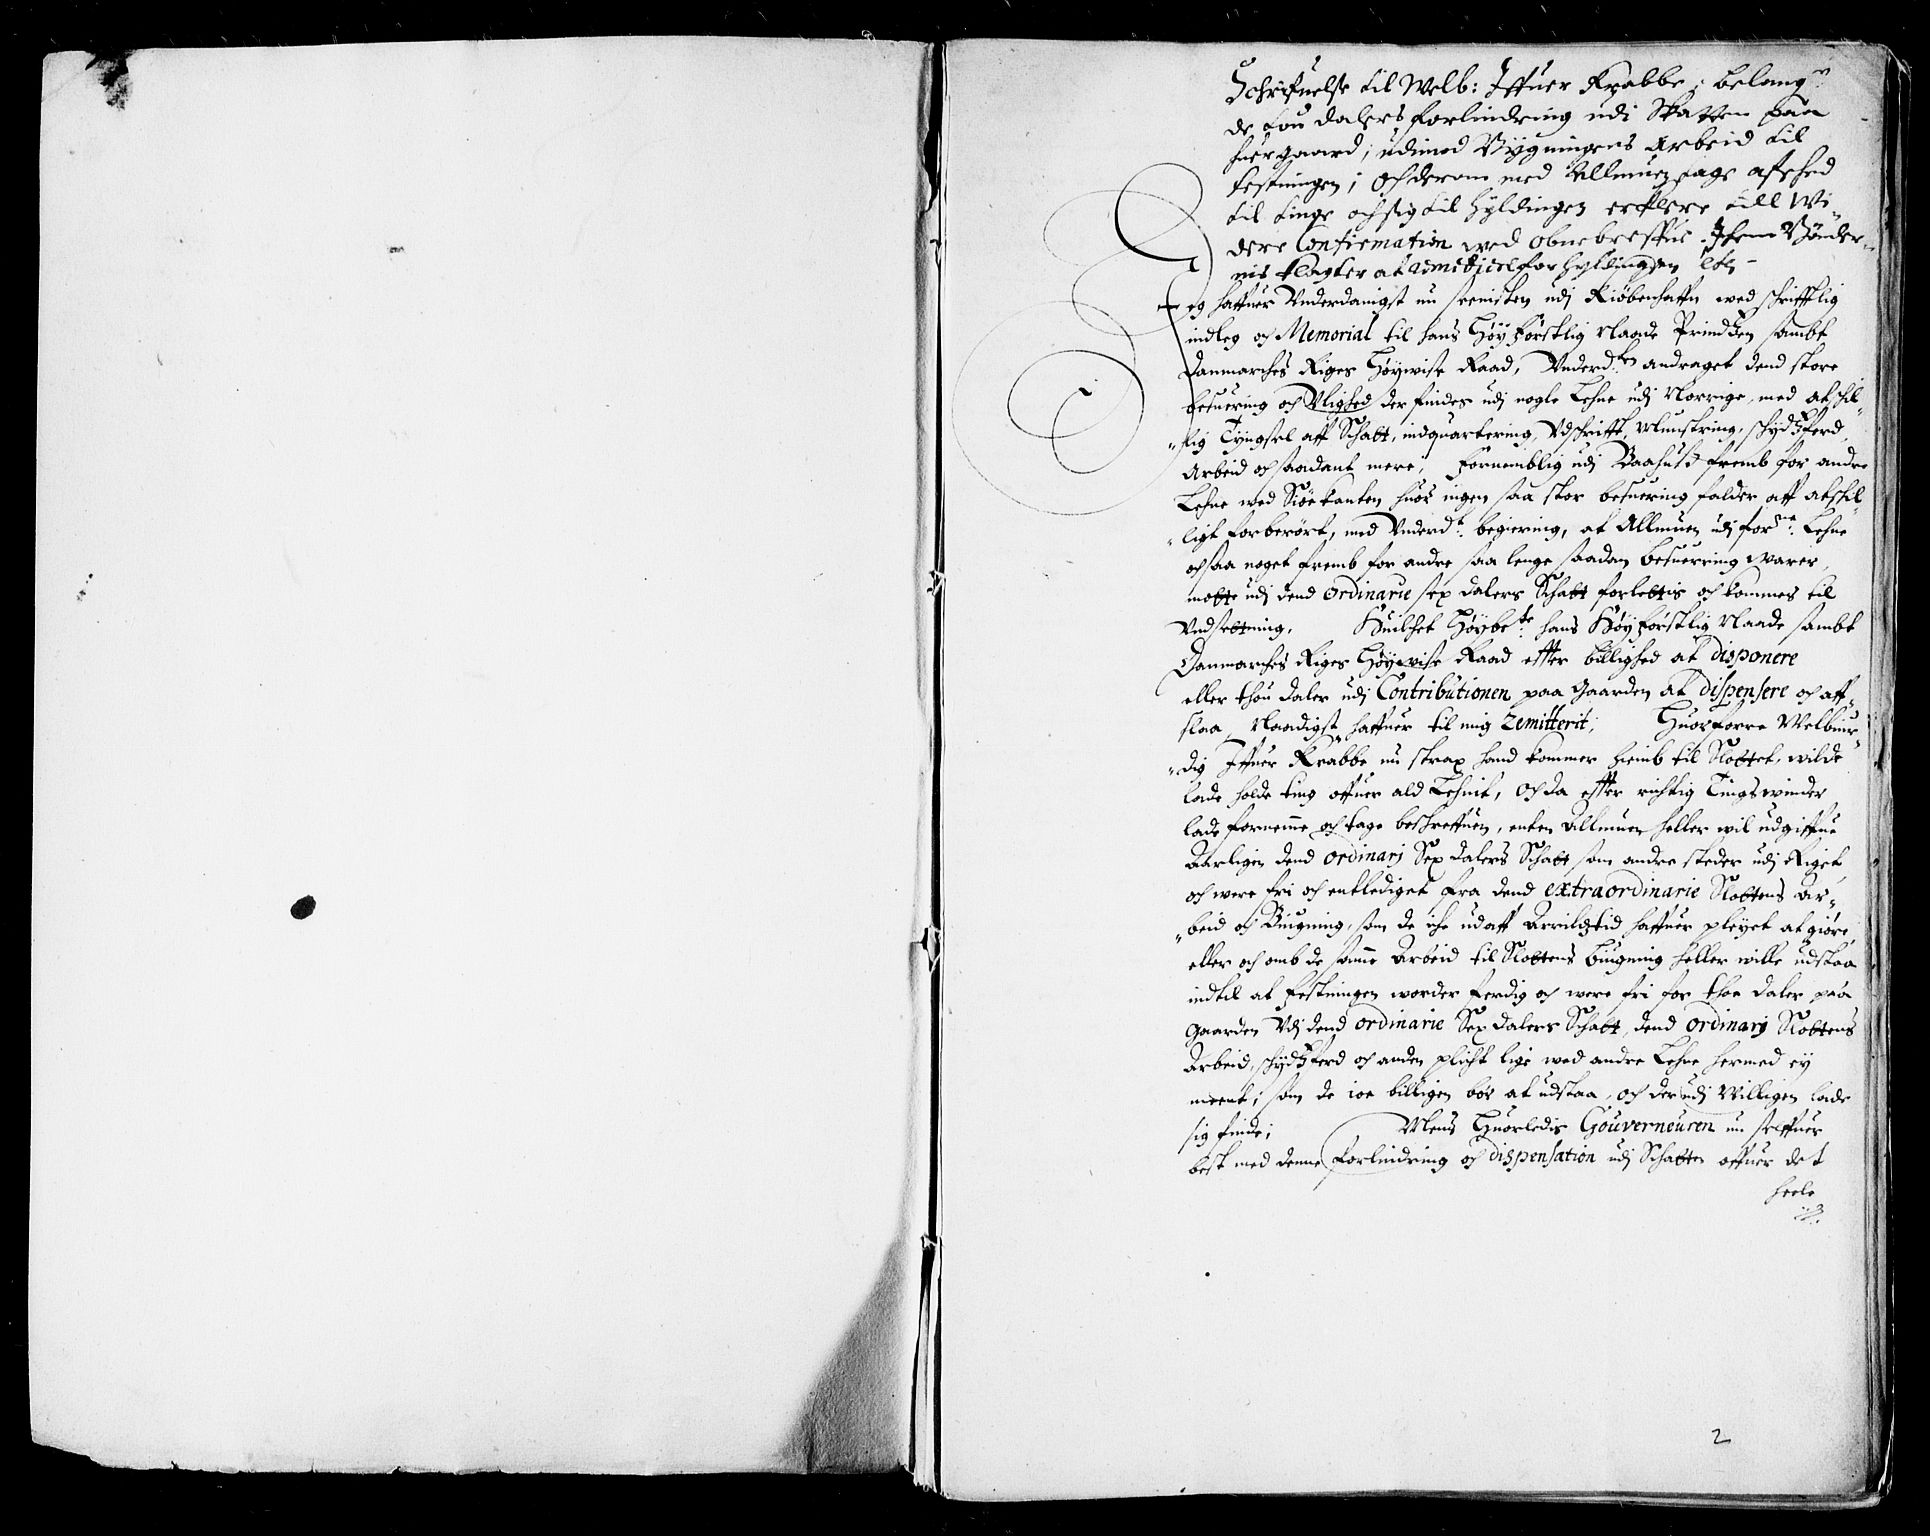 Schrifuelse til Welb: Iffuer Krabbe; belang:n
de tou dalers forlindring udi Skatten paa
huer gaard; udimod Bygningens Arbeid til
festningen; och derom med Allmuen tage afsched
til tinge och sig til hyldingen erklere till Wi-
dere Confirmation wed obne breffue. Item Bønder-
nis klagter at remedieres for hyldingsen etc
Jeg haffuer Vnderdanigst nu seenisten udj Kiøbenhaffn wed schrifftlig
indleg och Memorial til hans Høy förstlig Naade Prindzen sambt
Danmarches Riges Høywise Raad, Vnderd:ten andraget dend store
besuering och Vlighed der findes udj nogle Lehne udj Norrige, med atschil-
lig Tyngsel aff Schatt, indquartering, Vdschrifft, Munstring, schydtzferd,
Arbeid och saadant mere, fornemblig udj Baahuus fremb for andre
Lehne wed Siøekanten huor ingen saa stor besuering falder aff atschil-
ligt forberørt, med Vnderd:t begiering, at Allmuen udj for:ne Lehne
och saa noget fremb for andre saa lenge saadan besuerring warer,
motte udj dend Ordinarie sex dalers Schatt forlettis och kommes til
Vndsettning. Huilchet Høybe:te hans Høyförstlig Naade sambt
Danmarches Riges Høywise Raad effter billighed at disponere
eller thou daler udj Contributionen paa Gaarden at dispensere och aff-
slaa, Naadigst haffuer til mig remitterit; Huorforre Welbiur-
dig Iffuer Krabbe nu strax hand kommer hiemb til Slottet, wilde
lade holde ting offuer ald Lehnit, och da effter richtig Tingswinder
lade fornemme och tage beskreffuen, enten Allmuen heller wil udgiffue
Aarligen dend ordinarj Sex dalers Schatt som andre steder udj Riget,
och were fri och entlediget fra dend extraordinarie Slottens Ar-
beid och Bugning, som de iche udaff Arrildztid haffuer pleyet at giøre,
eller och omb de samme Arbeid til Slottens bugning heller wille udstaa
indtil at festningen worder ferdig och were fri for thoe daler paa
Gaarden Vdj dend ordinarie Sex dalers Schatt, dend ordinarj Slottens
Arbeid, schydtzferd och anden plicht lige wed andre Lehne hermed ey
meent; som de ioe billigen bør at udstaa, och der udj Willigen lade
sig finde; Mens Huorledis Gouverneuren nu
best med denne forlindring och dispensation udj Schatten offuer det
heele
2